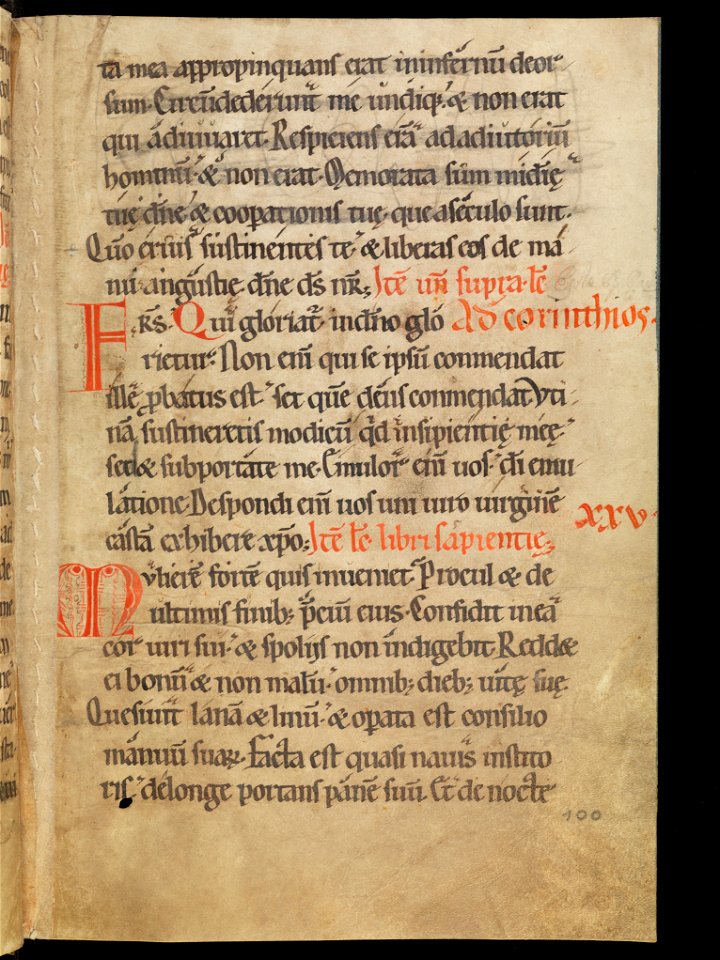 ta mea appropinquans erat in infernū deor
sum. Circūdederunt me undiq;. & non erat
qui adiuuaret. Respiciens erā ad adiutoriū
hominū. & non erat. Memorata sum mīdię
tuę dn̄e & cooꝑationis tuę. que a sęculo sunt.
Qūo eruis sustinentes te. & liberas eos de ma
nu angustię dn̄e ds̄ nr̄; Itē un̄ supra. lē
FRS. Qui gloriat̄ in dn̄o glō Ad corinthios.
rietur. Non enī qui se ipsū conmendat
ille ꝓbatus est. set quē deus conmendat. Vti
nā sustineretis modicū qd̄ insipientię meę.
sed & subportate me. Emulor enī uos. dī emu
latione. Despondi enī uos uni uiro uirginē
castā exhibere xp̄o; Itē lē. libri sapientię; xxv.
Mulierē fortē quis inueniet. Procul & de
ultimis finib; p̄ciū eius. Confidit in ea
cor uiri sui. & spoliis non indigebit. Redd&
ei bonū & non malū. omnib; dieb; uitę suę.
Quesiuit lanā & linū. & oꝑata est consilio
manuū suaꝝ. Facta est quasi nauis instito
ris. de longe portans panē suū. Et de nocte
100